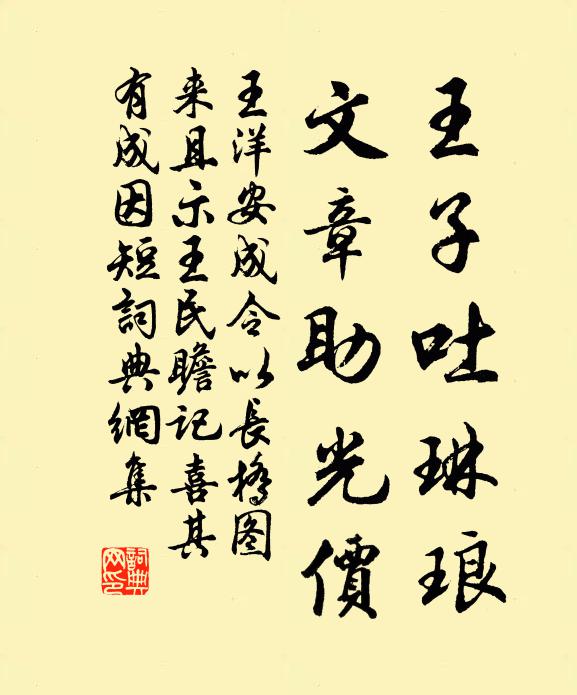 王子吐琳琅
文章助光價
王洋安成令以長橋图
来且示王民瞻记喜其
有成因短詞典網集
詞典网印